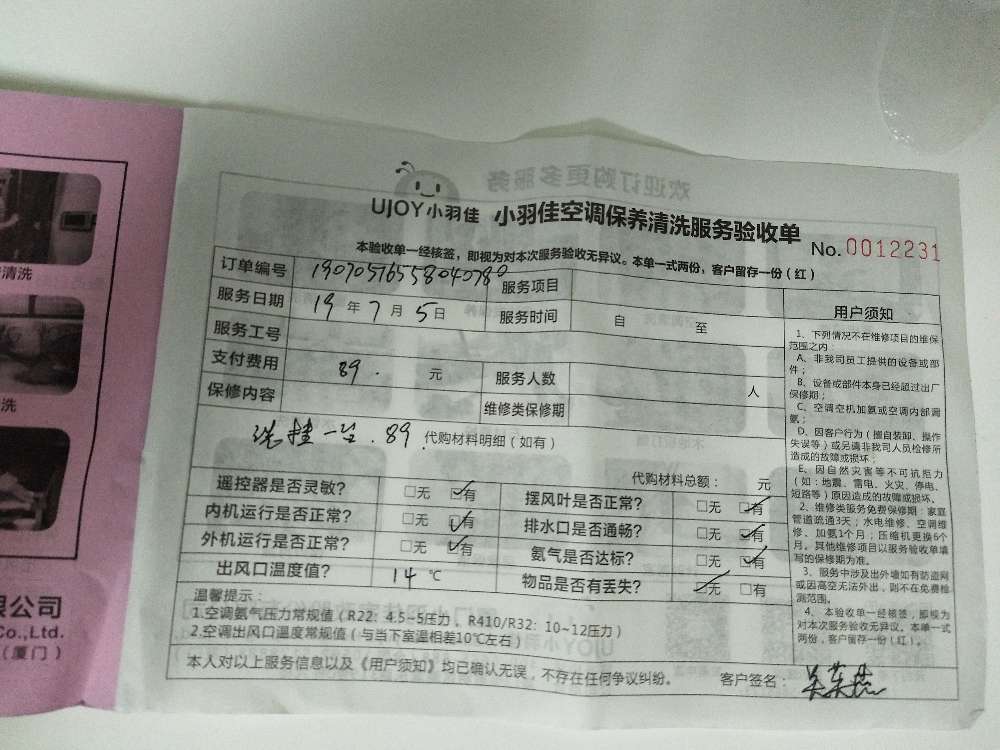 清洗
洗
限公司
Co.,Ltd.
(厦门)
欢迎订购更多服务
UJOY小羽佳 小羽佳空调保养清洗服务验收单
No.0012231
本验收单一经核签，即视为对本次服务验收无异议。本单一式两份，客户留存一份（红）
订单编号 19070516558040780 服务项目
服务日期 19年7月5日 服务时间 自 至
服务工号
支付费用 89. 元 服务人数 人
保修内容 维修类保修期
洗挂一台.89 代购材料明细（如有）
代购材料总额： 元
遥控器是否灵敏？ □无 ☑有 摆风叶是否正常？ □无 ☑有
内机运行是否正常？ □无 ☑有 排水口是否通畅？ □无 ☑有
外机运行是否正常？ □无 ☑有 氨气是否达标？ □无 ☑有
出风口温度值？ 14 ℃ 物品是否有丢失？ ☑无 □有
温馨提示：
1.空调氨气压力常规值（R22：4.5~5压力，R410/R32：10~12压力）
2.空调出风口温度常规值（与当下室温相差10℃左右）
本人对以上服务信息以及《用户须知》均已确认无误，不存在任何争议纠纷。 客户签名：
用户须知
1、下列情况不在维修项目的维保
范围之内：
A、非我司员工提供的设备或部
件；
B、设备或部件本身已经超过出厂
保修期；
C、空调空机加氨或空调内部漏
氨；
D、因客户行为（擅自装卸、操作
失误等）或另请非我司人员检修所
造成的故障或损坏；
E、因自然灾害等不可抗阻力
（如：地震、雷电、火灾、停电、
短路等）原因造成的故障或损坏。
2、维修类服务免费保修期：家庭
管道疏通3天；水电维修、空调维
修、加氨1个月；压缩机更换6个
月。其他维修项目以服务验收单填
写的保修期为准。
3、服务中涉及出外墙如有防盗网
或因高空无法外出，则不在免费检
测范围。
4、本验收单一经核签，即视为
对本次服务验收无异议。本单一式
两份，客户留存一份（红）。